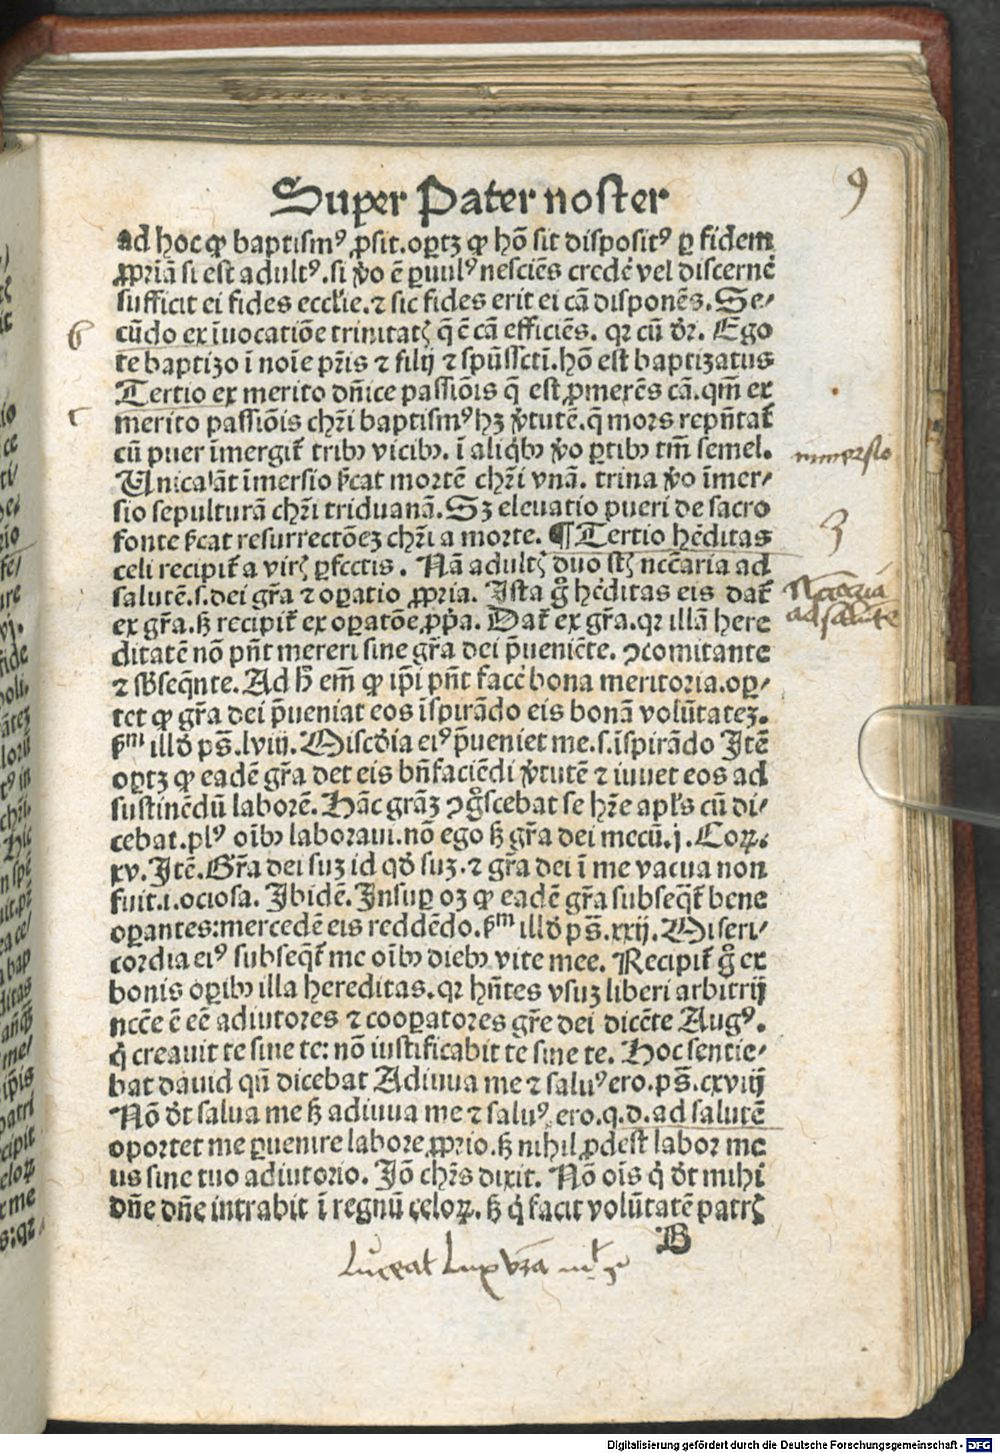 Super Pater noster
9
ad hoc ꝙ baptism⁹ ꝓsit. oꝑtꝫ ꝙ hō sit disposit⁹ ꝑ fidem
ꝓpriā si est adult⁹. si v̓o ē ꝑuul⁹ nesciēs credē vel discernē
sufficit ei fides eccl'ie. ⁊ sic fides erit ei cā disponēs. Se⸗
b
cūdo ex īuocatiōe trinitatꝭ q̄ ē cā efficiēs. qꝛ cū dr̄. Ego
te baptizo ī noīe pr̄is ⁊ filij ⁊ spūssctī. hō est baptizatus
Tertio ex merito dn̄ice passiōis q̄ est ꝓmerēs cā. qm̄ ex
c
merito passiōis chr̄i baptism⁹ hꝫ v̓tutē. q̄ mors repn̄tat̄
cū puer īmergit̄ tribꝰ vicibꝰ. ī aliqͥbꝰ v̓o ꝑtibꝰ tm̄ semel.
immersio
Unica aūt īmersio s̓cat mortē chr̄i vnā. trina v̓o īmer⸗
sio sepulturā chr̄i triduanā. Sꝫ eleuatio pueri de sacro
3
fonte s̓cat resurrectōeꝫ chr̄i a morte. ¶ Tertio hēditas
celi recipit̄ a virꝭ ꝑfectis. Nā adultꝭ duo st̄ꝭ necc̄aria ad
salutē. s. dei gr̄a ⁊ oꝑatio ꝓpria. Ista gͦ hēditas eis dat̄
Necc̄aria
ad salutē
ex gr̄a. sꝫ recipit̄ ex oꝑatōe ꝓp̓a. Dat̄ ex gr̄a. qꝛ illā here
ditatē nō pn̄t mereri sine gr̄a dei p̄ueniēte. ꝯcomitante
⁊ sb̓seqn̄te. Ad hͦ em̄ ꝙ ip̄i pn̄t facē bona meritoria. oꝑ⸗
tet ꝙ gr̄a dei p̄ueniat eos īspirādo eis bonā volūtateꝫ.
ẜm illd̓ ps̄. lviij. Misc̓dia ei⁹ p̄ueniet me. s. īspirādo Itē
oꝑtꝫ ꝙ eadē gr̄a det eis bn̄faciēdi v̓tutē ⁊ iuuet eos ad
sustinēdū laborē. Hāc grāꝫ ꝯgͦscebat se hr̄e apl's cū di⸗
cebat. pl⁹ oīb⁹ laboraui. nō ego sꝫ gr̄a dei mecū. j. Coꝝ.
xv. Itē. Gr̄a dei suꝫ id qd̓ suꝫ. ⁊ gr̄a dei ī me vacua non
fuit. i. ociosa. Ibidē. Insuꝑ oꝫ ꝙ eadē gr̄a subseqt̄ bene
oꝑantes: mercedē eis reddēdo. ẜm illd̓ ps̄. xxij. Miseri⸗
cordia ei⁹ subseqt̄ me oīb⁹ dieb⁹ vite mee. Recipit̄ gͦ ex
bonis oꝑib⁹ illa hereditas. qꝛ hn̄tes vsuꝫ liberi arbitrij
nccē ē eē adiutores ⁊ cooꝑatores gr̄e dei dicēte Aug⁹.
qͥ creauit te sine te: nō iustificabit te sine te. Hoc sentie⸗
bat dauid qn̄ dicebat Adiuua me ⁊ salu⁹ ero. ps̄. cxviij
Nō dt̓ salua me sꝫ adiuua me ⁊ salu⁹ ero. q. d. ad salutē
oportet me ꝑuenire labore ꝓprio. sꝫ nihil ꝓdest labor me
us sine tuo adiutorio. Iō chr̄s dixit. Nō oīs qͥ dt̓ mihi
dn̄e dn̄e intrabit ī regnū celoꝝ. sꝫ qͥ facit volūtatē patrꝭ
B
Luceat Lux vr̄a
Digitalisierung gefördert durch die Deutsche Forschungsgemeinschaft - DFG